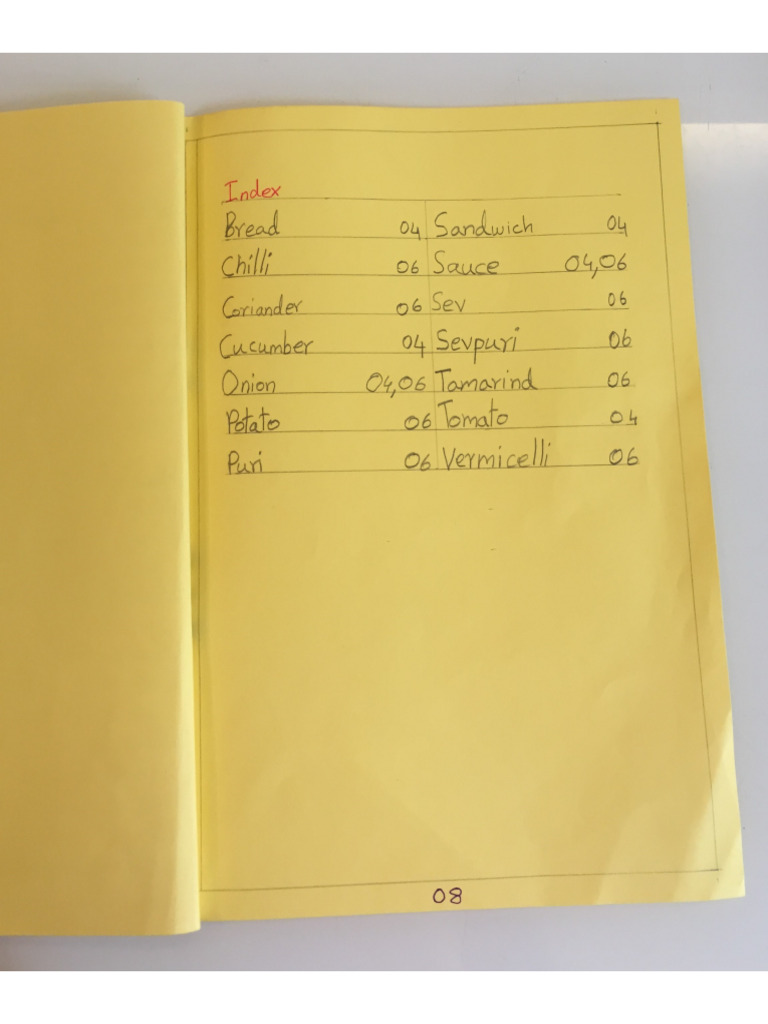 Index
Bread 04 Sandwich 04
Chilli 06 Sauce 04,06
Coriander 06 Sev 06
Cucumber 04 Sevpuri 06
Onion 04,06 Tamarind 06
Potato 06 Tomato 04
Puri 06 Vermicelli 06
08